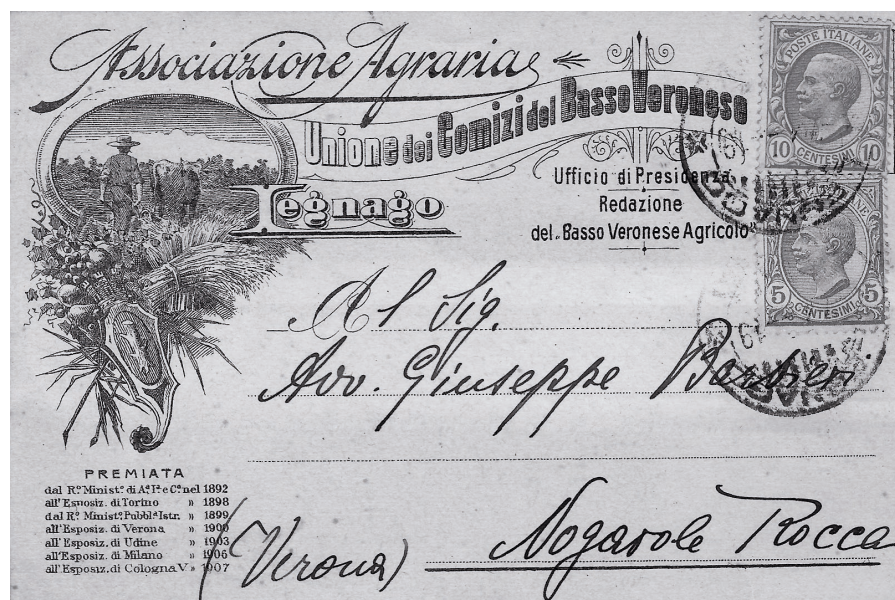 Associazione Agraria
Unione dei Comizi del Basso Veronese
Legnago
Ufficio di Presidenza
Redazione
del „Basso Veronese Agricolo"
POSTE ITALIANE
10 CENTESIMI 10
5 CENTESIMI 5
Al Sig.
Avv. Giuseppe Barbieri
Nogarole Rocca
(Verona)
PREMIATA
dal R.º Minist.º di A.ª I.ª e C.º nel 1892
all'Esposiz. di Torino » 1898
dal R.º Minist.º Pubbl.ª Istr. » 1899
all'Esposiz. di Verona » 1900
all'Esposiz. di Udine » 1903
all'Esposiz. di Milano » 1906
all'Esposiz. di Cologna V. » 1907